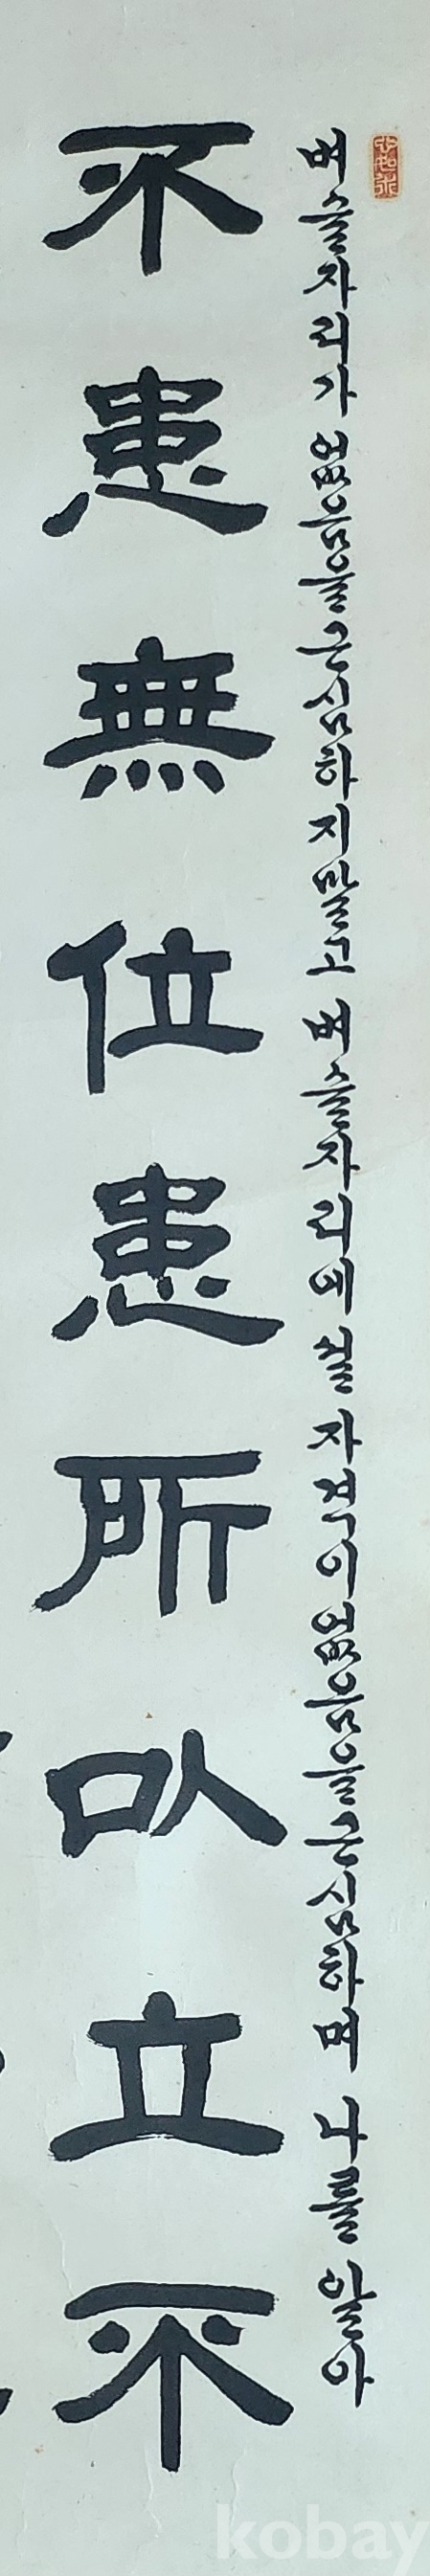 버슬자리가 없음을 근심하지말고 벼슬자리에 설 자격이 없음을 근심하며 나를 알아
不患無位患所以立不
kobay